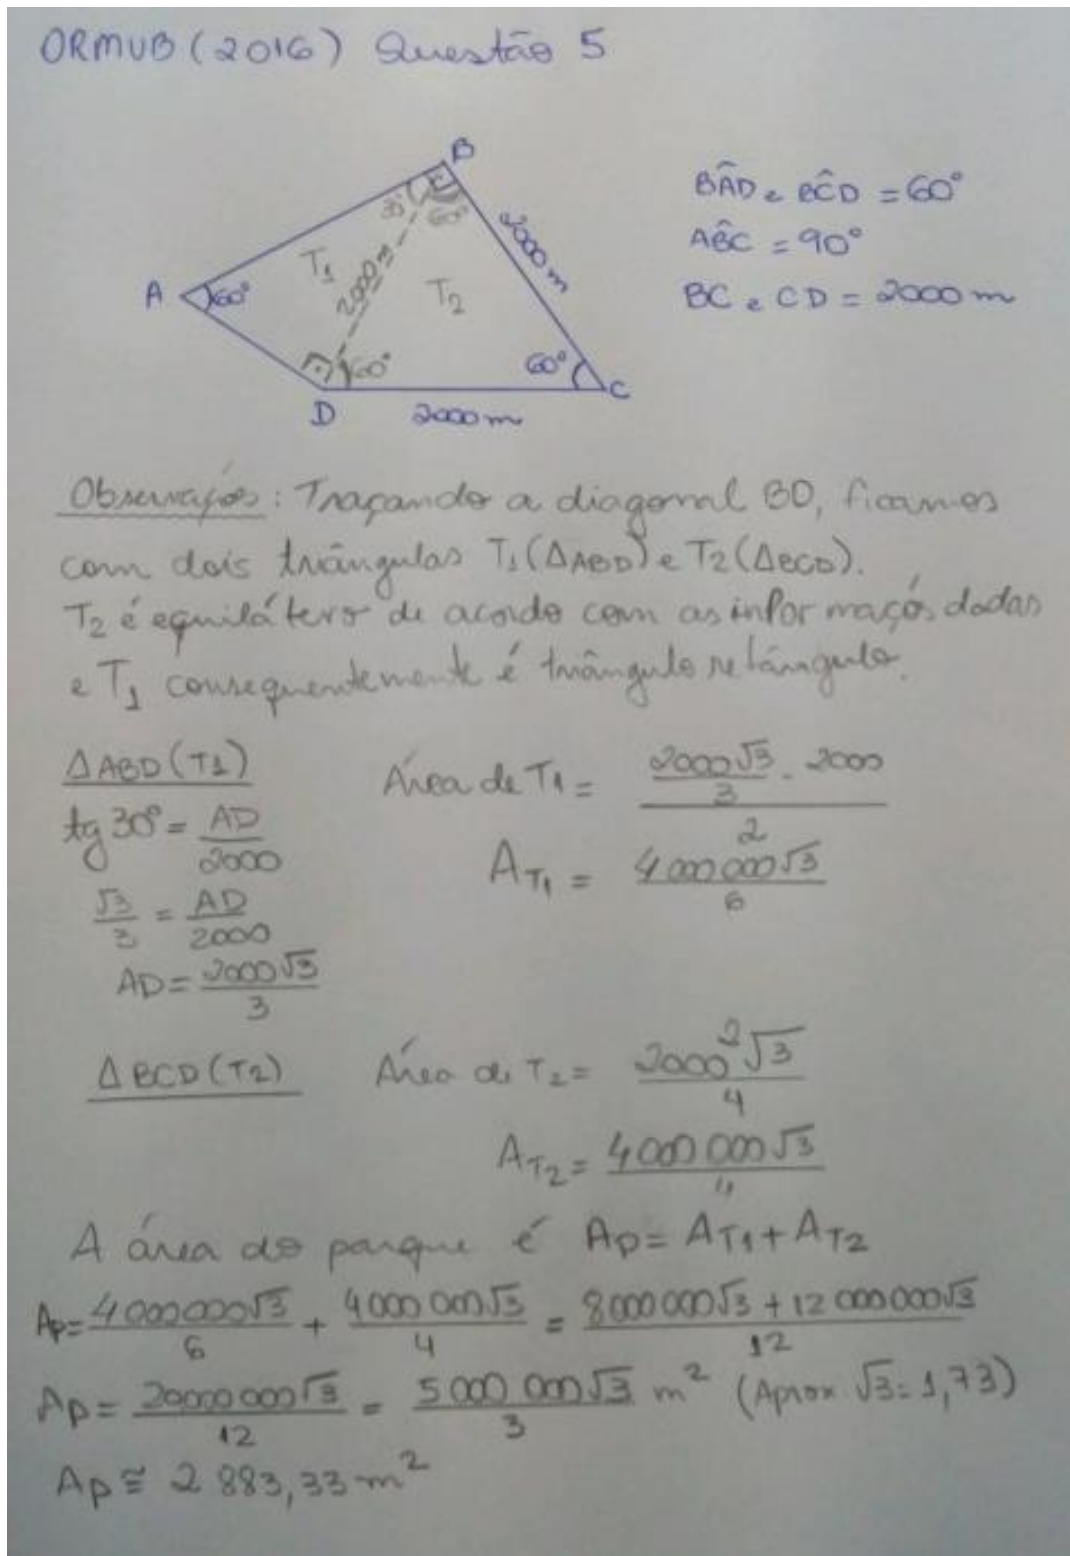 ORMUB (2016) Questão 5
B
BÂD e BĈD = 60°
AB̂C = 90°
BC e CD = 2000 m
30° 60°
2000 m
T₁
2000 m
T₂
A 60°
60°
60° C
D
2000 m
Observações: Traçando a diagonal BD, ficamos
com dois triângulos T₁(ΔABD) e T₂(ΔBCD).
T₂ é equilátero de acordo com as informações dadas
e T₁ consequentemente é triângulo retângulo.
ΔABD (T1)
tg 30° = AD/2000
√3/3 = AD/2000
AD = 2000√3/3
Área de T₁ = (2000√3/3 . 2000)/2
A_T₁ = 4 000 000√3/6
ΔBCD (T2)
Área de T₂ = 2000²√3/4
A_T₂ = 4 000 000√3/4
A área do parque é Ap = A_T₁ + A_T₂
Ap = 4 000 000√3/6 + 4 000 000√3/4 = (8 000 000√3 + 12 000 000√3)/12
Ap = 20 000 000√3/12 = 5 000 000√3/3 m² (Aprox √3 = 1,73)
Ap ≅ 2 883,33 m²